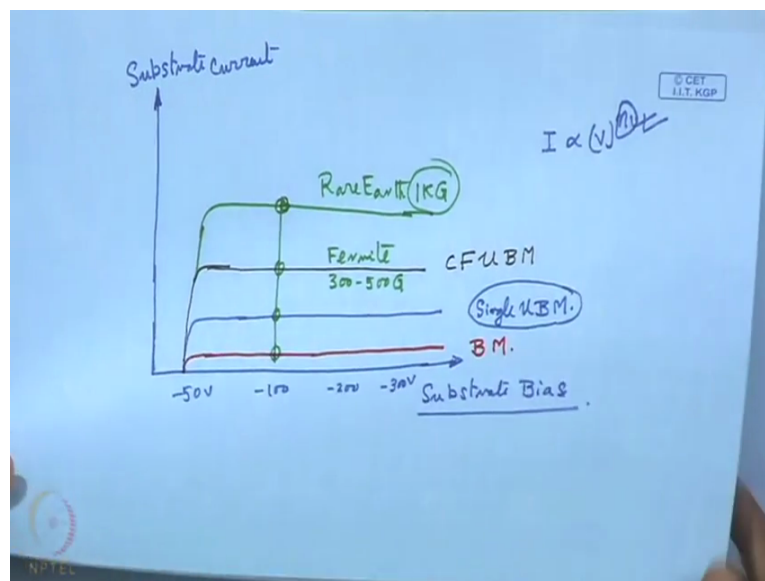 Substrate Current
© CET
I.I.T. KGP
I ∝ (V)
Rare Earth 1KG
Ferrite CFUBM
300-500G
Single UBM.
BM.
-50V -100 -200 -300V Substrate Bias.
NPTEL